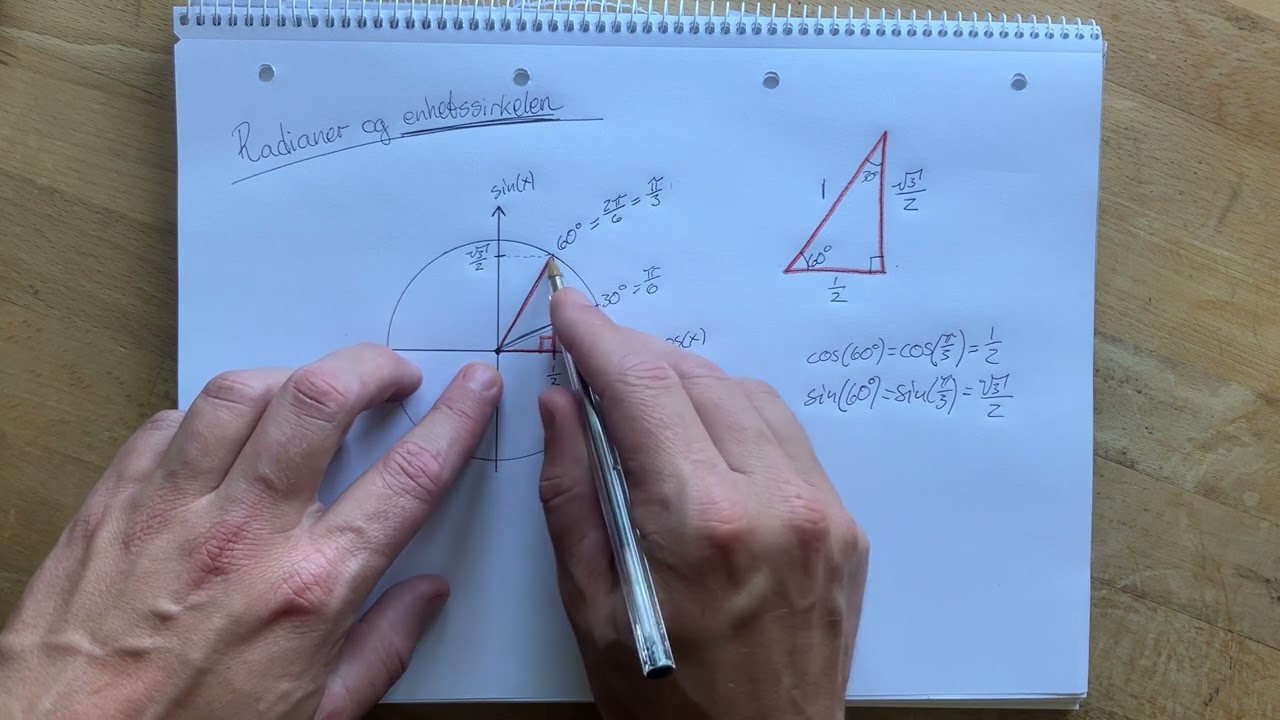 Radianer og enhetssirkelen
sin(x)
60° = 2π/6 = π/3
√3/2
30° = π/6
os(x)
1/2
1
30°
√3/2
60°
1/2
cos(60°)=cos(π/3)=1/2
sin(60°)=sin(π/3)=√3/2